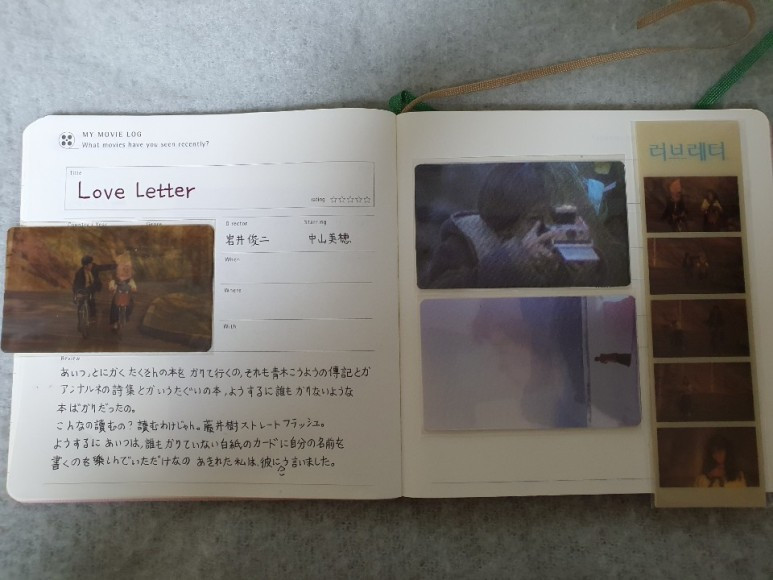 MY MOVIE LOG
What movies have you seen recently?
Title
Love Letter
rating ☆☆☆☆☆
Director Starring
岩井俊二 中山美穂
When
Where
With
Review
あいつ、とにかく たくさんの本を かりて行くの、それも青木こうようの傳記とか
アンナルネの詩集とかいうたぐいの本、ようするに誰も かりないような
本ばかりだったの。
こんなの讀むの? 讀むわけじゃん。藤井樹ストレートフラッシュ。
ようするに あいつは、誰もかりていない白紙のカードに自分の名前を
書くのを楽しんでいただけなの あきれた私は、彼にこう言いました。
러브레터